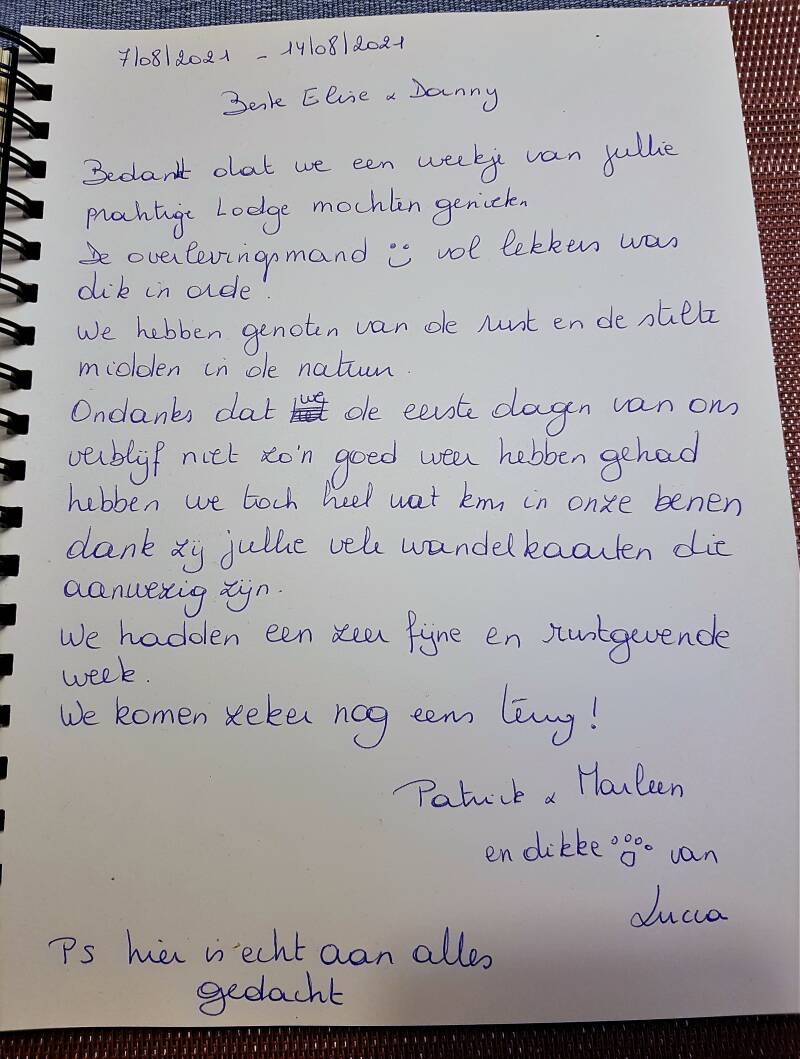 7/08/2021 - 14/08/2021
Beste Elise & Danny
Bedankt dat we een weekje van jullie
prachtige Lodge mochten genieten
De overlevingsmand vol lekkers was
dik in orde.
We hebben genoten van de rust en de stilte
midden in de natuur.
Ondanks dat we de eerste dagen van ons
verblijf niet zo'n goed weer hebben gehad
hebben we toch heel wat kms in onze benen
dank zij jullie vele wandelkaarten die
aanwezig zijn.
We hadden een zeer fijne en rustgevende
week.
We komen zeker nog eens terug!
Patrick & Marleen
en dikke van
Lucca
Ps hier is echt aan alles
gedacht